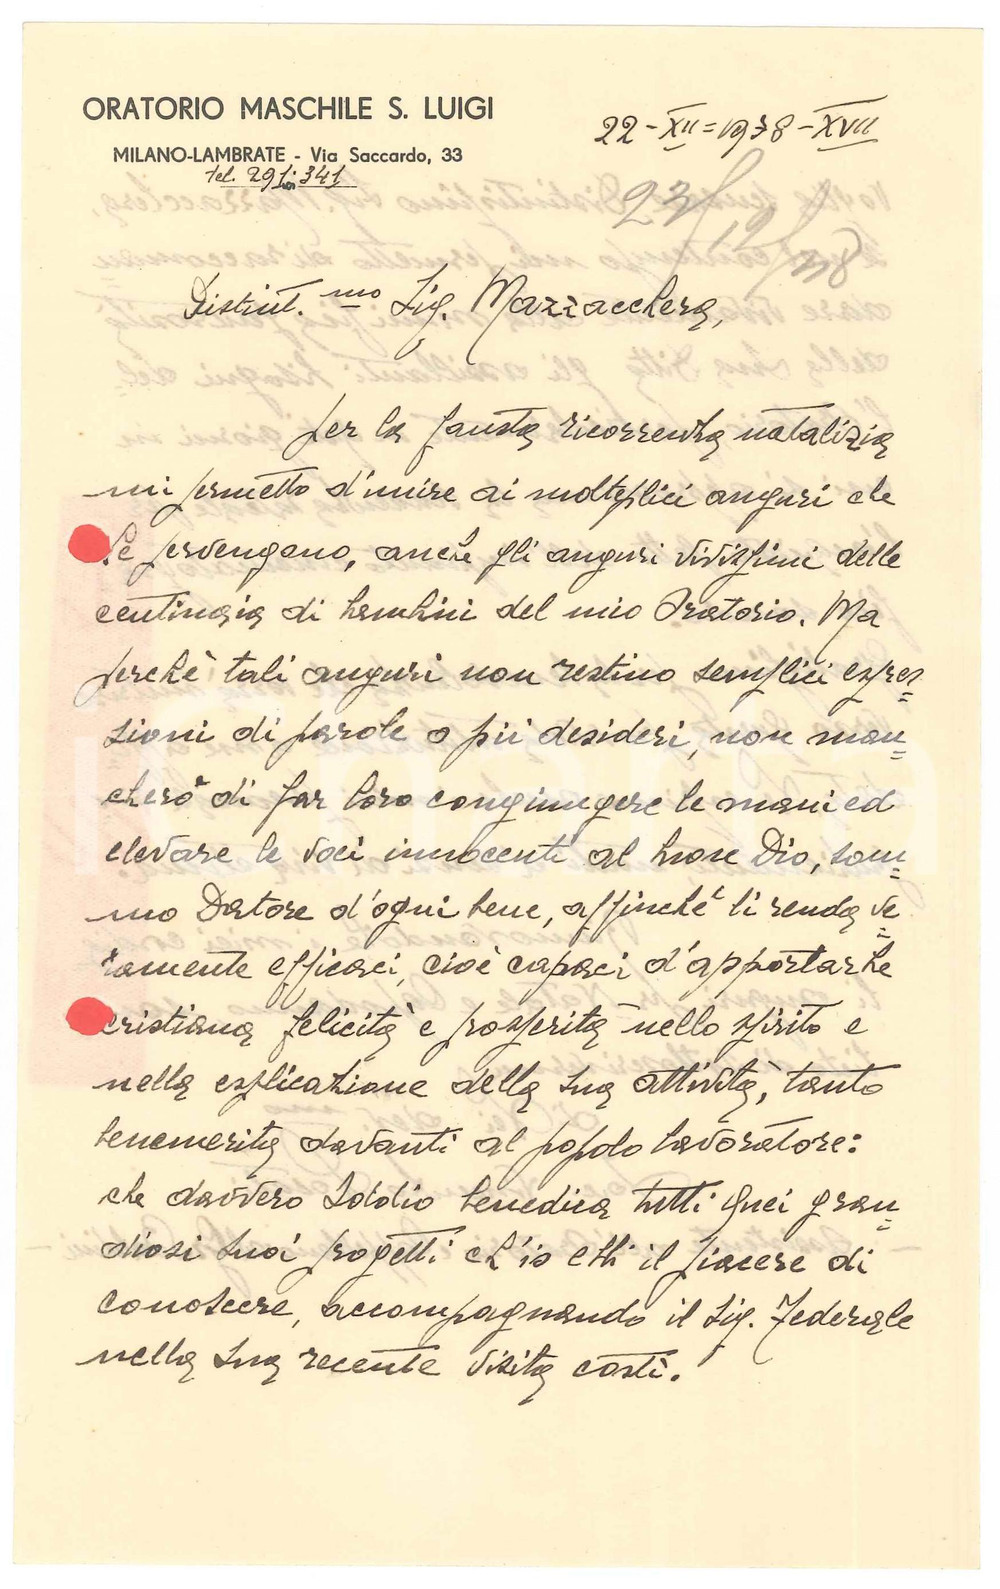 ORATORIO MASCHILE S. LUIGI
MILANO-LAMBRATE - Via Saccardo, 33
Tel. 291-341
22-XII=1938-XVII
23/12/38
Distint.mo Sig. Mazzacchera,
per la fausta ricorrenza natalizia
mi permetto d'unire ai molteplici auguri che
Le pervengono, anche gli auguri vivissimi delle
centinaia di bambini del mio Oratorio. Ma
perchè tali auguri non restino semplici espres=
sioni di parole o pii desideri, non man=
cherò di far loro congiungere le mani ed
elevare le voci innocenti al buon Dio, som=
mo Datore d'ogni bene, affinchè li renda ve=
ramente efficaci, cioè capaci d'apportarLe
cristiana felicità e prosperità nello spirito e
nella esplicazione della Sua attività, tanto
benemerita davanti al popolo lavoratore:
che davvero Iddio benedica tutti quei gran=
diosi Suoi progetti ch'io ebbi il piacere di
conoscere, accompagnando il Sig. Federale
nella Sua recente visita costì.